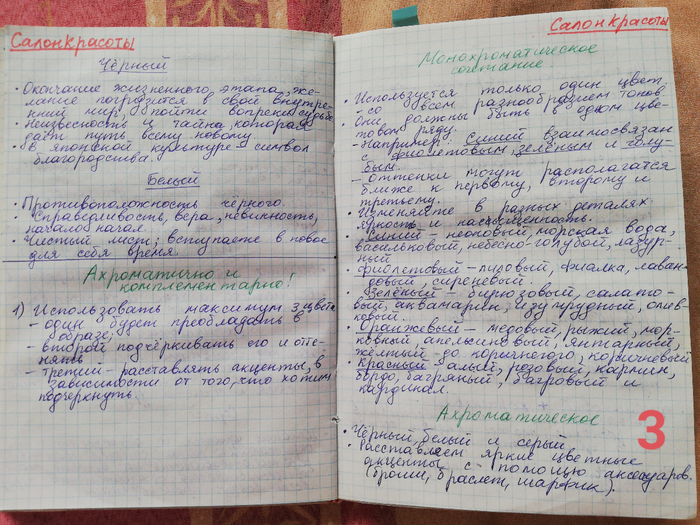 Салон Красоты
Чёрный
• Окончание жизненного этапа, же-
лание погрузится в свой внутре-
ний мир, пойти вопреки судьбе
• Неизвесность и тайна, которая
даёт путь всему новому.
• В японской культуре - символ
благородства.
Белый
• Противоположность чёрного.
• Справедливость, вера, невинность,
начало начал.
• Чистый лист, вступаете в новое
для себя время.
Ахроматично и
комплементарно!
1) Использовать максимум 3 цвета
- один будет преобладать в
образе,
- второй подчёркивать его и отте-
нять
- третий - расставлять акценты, в
зависимости от того, что хотим
подчеркнуть.
Салон Красоты
Монохроматическое
сочетание
• Используется только один цвет
со всем разнообразием тонов
• Они должны быть в одном цве-
товом ряду.
- Например: Синий взаимосвязан
с фиолетовым, зелёным и голу-
бым.
- Оттенки могут располагатся
ближе к первому, второму и
третьему.
• Изменяйте в разных деталях
яркость и насыщенность.
• Синий - неоновый, морская вода,
васильковый, небесно-голубой, лазур-
ный
• Фиолетовый - лиловый, фиалка, лаван-
довый, сиреневый.
• Зелёный - бирюзовый, салато-
вый, аквамарин, изумрудный, олив-
ковый.
• Оранжевый - медовый, рыжий, мор-
ковный, апельсиновый, янтарный,
жёлтый до коричнего, коричневый
• Красный - алый, розовый, кармин,
бордо, багряный, багровый и
кардинал.
Ахроматическое
• Чёрный, белый и серый
• Расставляем яркие цветные
акценты с помощью аксесуаров.
(броши, браслет, шарфик).
3